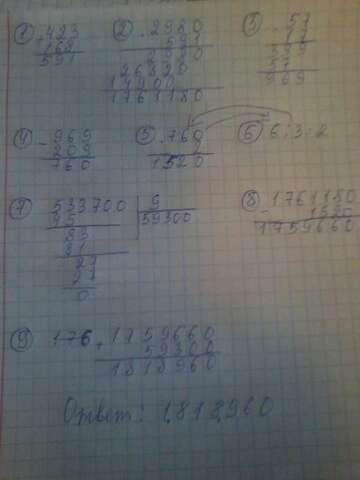 ① + 423
168
591
② . 2980
591
2980
26820
14900
1761180
③ . 57
17
399
57
969
④ - 969
209
760
⑤ . 760
2
1520
⑥ 6:3=2
⑦ 533700 | 9
45 59300
83
81
27
27
0
⑧ - 1761180
1520
1759660
⑨ 176 + 1759660
59300
1818960
Ответ: 1818960